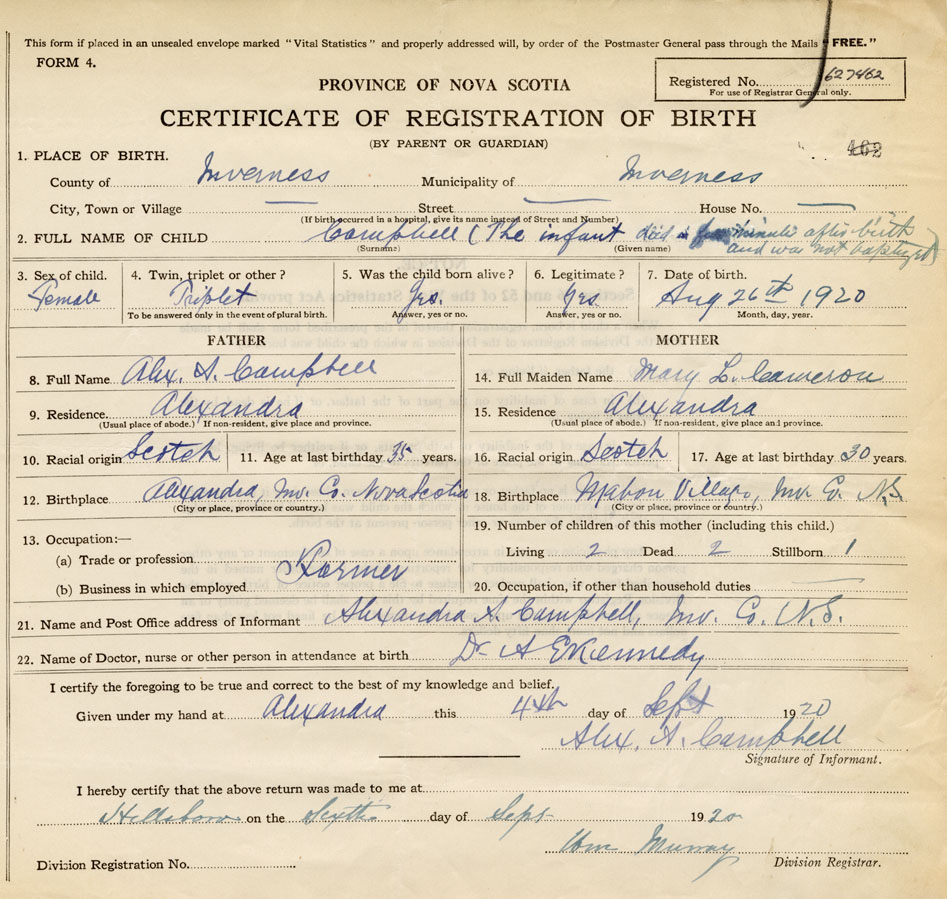 This form if placed in an unsealed envelope marked "Vital Statistics" and properly addressed will, by order of the Postmaster General pass through the Mails "FREE."
FORM 4.
Registered No. 627462
For use of Registrar General only.
PROVINCE OF NOVA SCOTIA
CERTIFICATE OF REGISTRATION OF BIRTH
(BY PARENT OR GUARDIAN)
462
1. PLACE OF BIRTH.
County of Inverness Municipality of Inverness
City, Town or Village — Street — House No. —
(If birth occurred in a hospital, give its name instead of Street and Number)
2. FULL NAME OF CHILD Campbell (The infant died a few minute after birth
(Surname) (Given name) and was not baptized)
3. Sex of child. 4. Twin, triplet or other? 5. Was the child born alive? 6. Legitimate? 7. Date of birth.
Female Triplet Yes. Yes Aug 26th 1920
To be answered only in the event of plural birth. Answer, yes or no. Answer, yes or no. Month, day, year.
FATHER
8. Full Name Alex. A. Campbell
9. Residence. Alexandra
(Usual place of abode.) If non-resident, give place and province.
10. Racial origin Scotch 11. Age at last birthday 35 years.
12. Birthplace Alexandra, Inv. Co. Nova Scotia
(City or place, province or country.)
13. Occupation:—
(a) Trade or profession
(b) Business in which employed Farmer
MOTHER
14. Full Maiden Name Mary L. Cameron
15. Residence Alexandra
(Usual place of abode.) If non-resident, give place and province.
16. Racial origin Scotch 17. Age at last birthday 30 years.
18. Birthplace Mabou Village, Inv. Co. N.S.
(City or place, province or country.)
19. Number of children of this mother (including this child.)
Living 2 Dead 2 Stillborn 1
20. Occupation, if other than household duties —
21. Name and Post Office address of Informant Alexandra A. Campbell, Inv. Co. N.S.
22. Name of Doctor, nurse or other person in attendance at birth Dr A E Kennedy
I certify the foregoing to be true and correct to the best of my knowledge and belief.
Given under my hand at Alexandra this 4th day of Sept 1920
Alex. A. Campbell
Signature of Informant.
I hereby certify that the above return was made to me at
Hillsboro on the Sixth day of Sept 1920
Wm Murray
Division Registration No. Division Registrar.